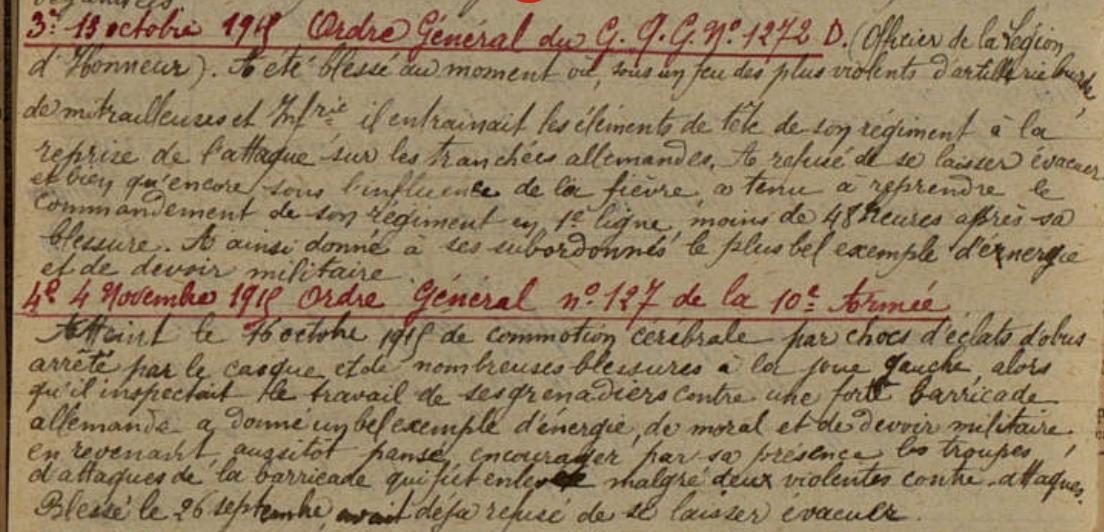 organisées
3º: 15 octobre 1915 Ordre Général du G.Q.G. Nº. 1272 D. (Officier de la Légion
d'Honneur). A été blessé au moment où, sous un feu des plus violents d'artillerie lourde,
de mitrailleuses et Infrie il entrainait les éléments de tête de son régiment à la
reprise de l'attaque sur les tranchées allemandes. A refusé de se laisser évacuer
et bien qu'encore sous l'influence de la fièvre a tenu à reprendre le
commandement de son régiment en 1e ligne, moins de 48 heures après sa
blessure. A ainsi donné à ses subordonnés le plus bel exemple d'énergie
et de devoir militaire
4º 4 Novembre 1915 Ordre Général nº. 127 de la 10e Armée
Atteint le 16 octobre 1915 de commotion cérébrale par chocs d'éclats d'obus
arrêté par le casque et de nombreuses blessures à la joue gauche alors
qu'il inspectait le travail de ses grenadiers contre une forte barricade
allemande a donné un bel exemple d'énergie, de moral et de devoir militaire,
en revenant, aussitôt pansé, encourager par sa présence les troupes
d'attaques de la barricade qui fut enlevée malgré deux violentes contre-attaques.
Blessé le 26 septembre, avait déja refusé de se laisser évacuer.